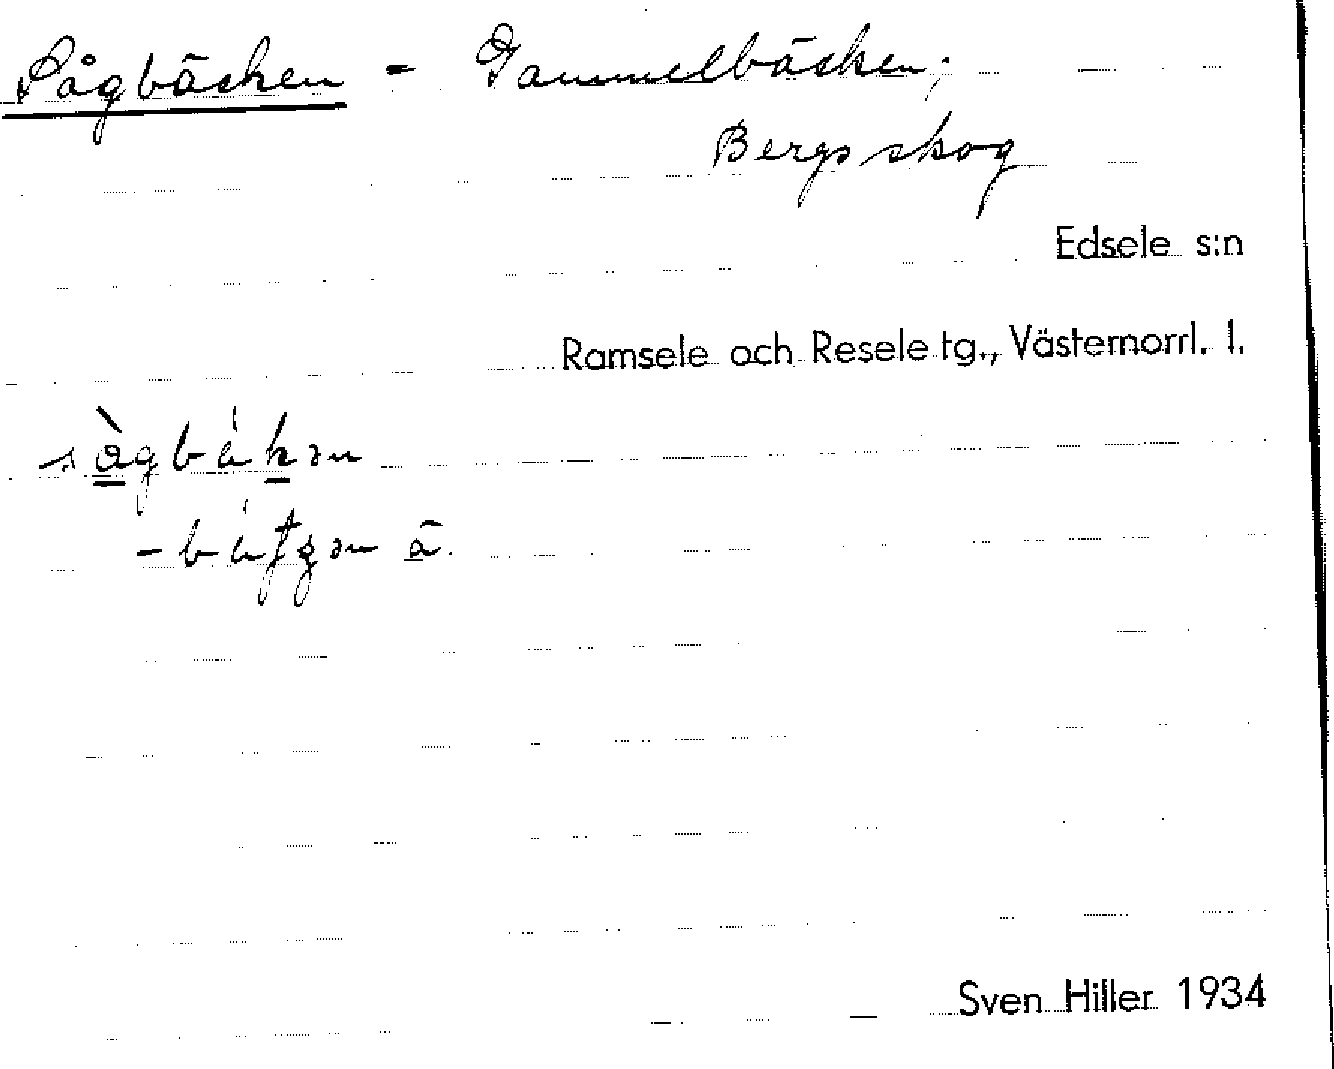 Sågbäcken - Gammelbäcken;
Bergs skog
Edsele s:n
Ramsele och Resele tg., Västernorrl. l.
Sven Hiller 1934